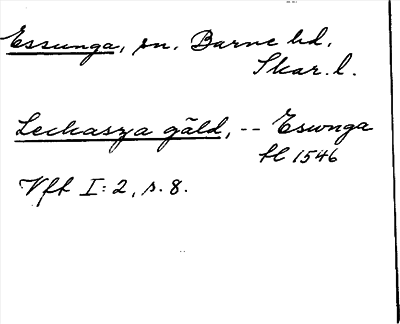 Essunga, sn. Barne hd.
Skar. l.
Leckasza gäld, -- Eswnga
hl 1546
Vfh I:2, s. 8.